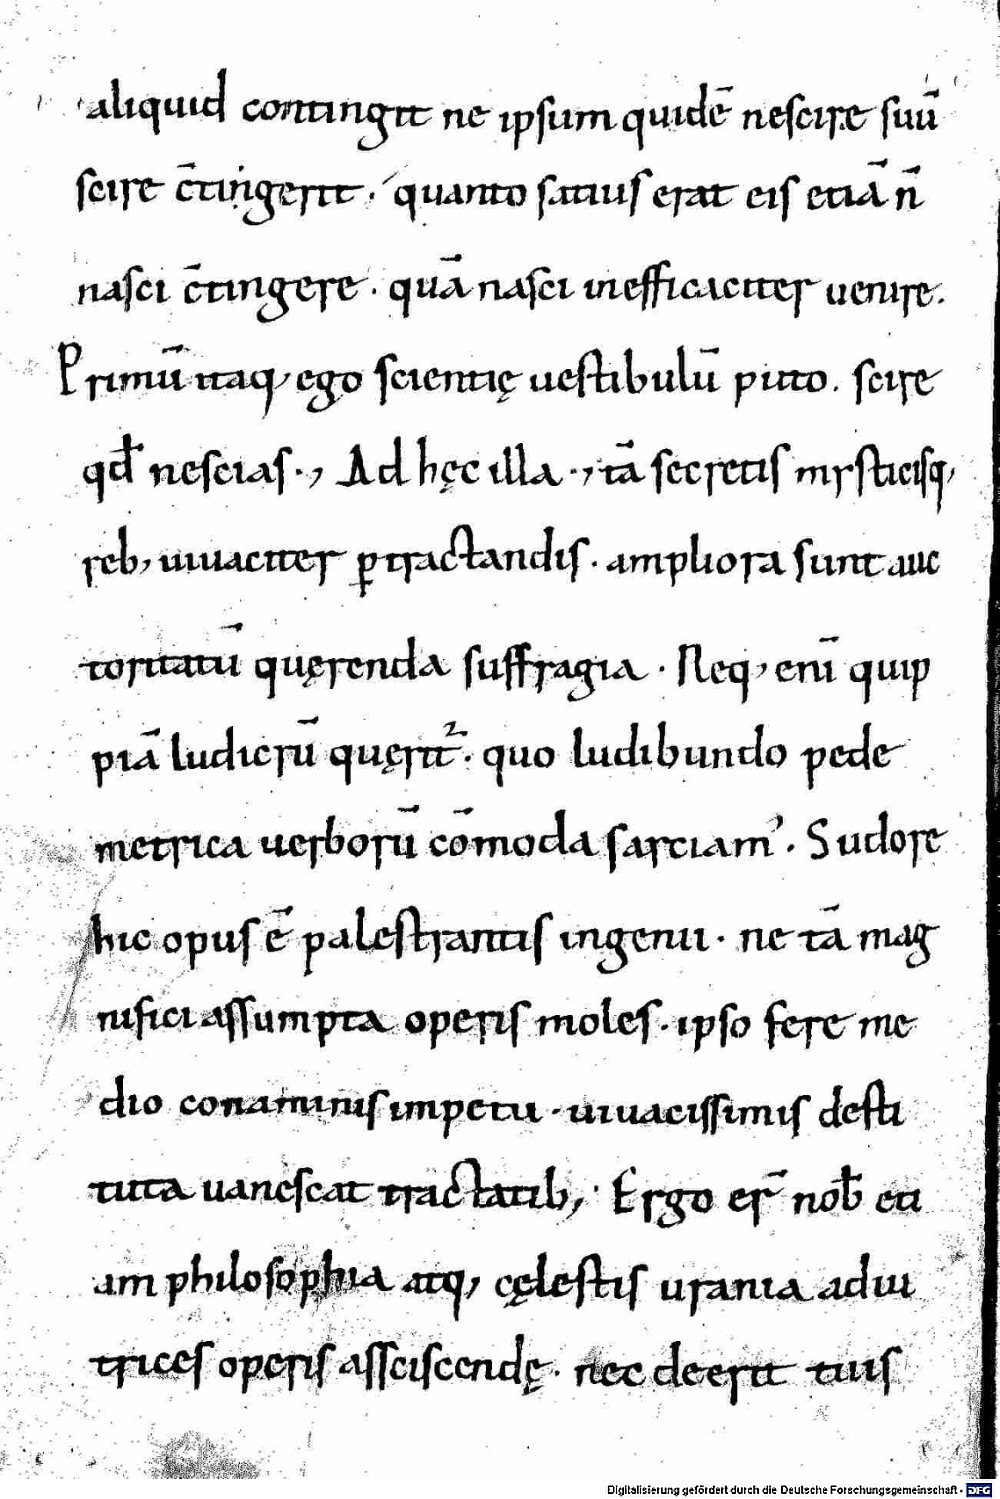 aliquid contingit ne ipsum quidē nescire suū
scire c̄tingerit · quanto satius erat eis etiā n̄
nasci c̄tingere · quā nasci inefficaciter uenire.
Primū itaq, ego scientię uestibulū puto. scire
qđ nescias ·, Ad hęc illa ·, tā secretis mysticisq,
reb, uiuaciter ꝑtractandis · ampliora sunt auc
toritatū quęrenda suffragia · Neq, eni̅ quip
piā ludicrū quęrit᷑ · quo ludibundo pede
metrica uerborū cōmoda sarciam᾽. Sudore
hic opus ē palestrantis ingenii · ne tā mag
nifici assumpta operis moles · ipso fere me
dio conaminis impetu · uiuacissimis desti
tuta uanescat tractatib, · Ergo er̄ nob̄ eti
am philosophia atq, cęlestis urania adiu
trices operis asciscendę · nec deerit tuis
Digitalisierung gefördert durch die Deutsche Forschungsgemeinschaft - DFG